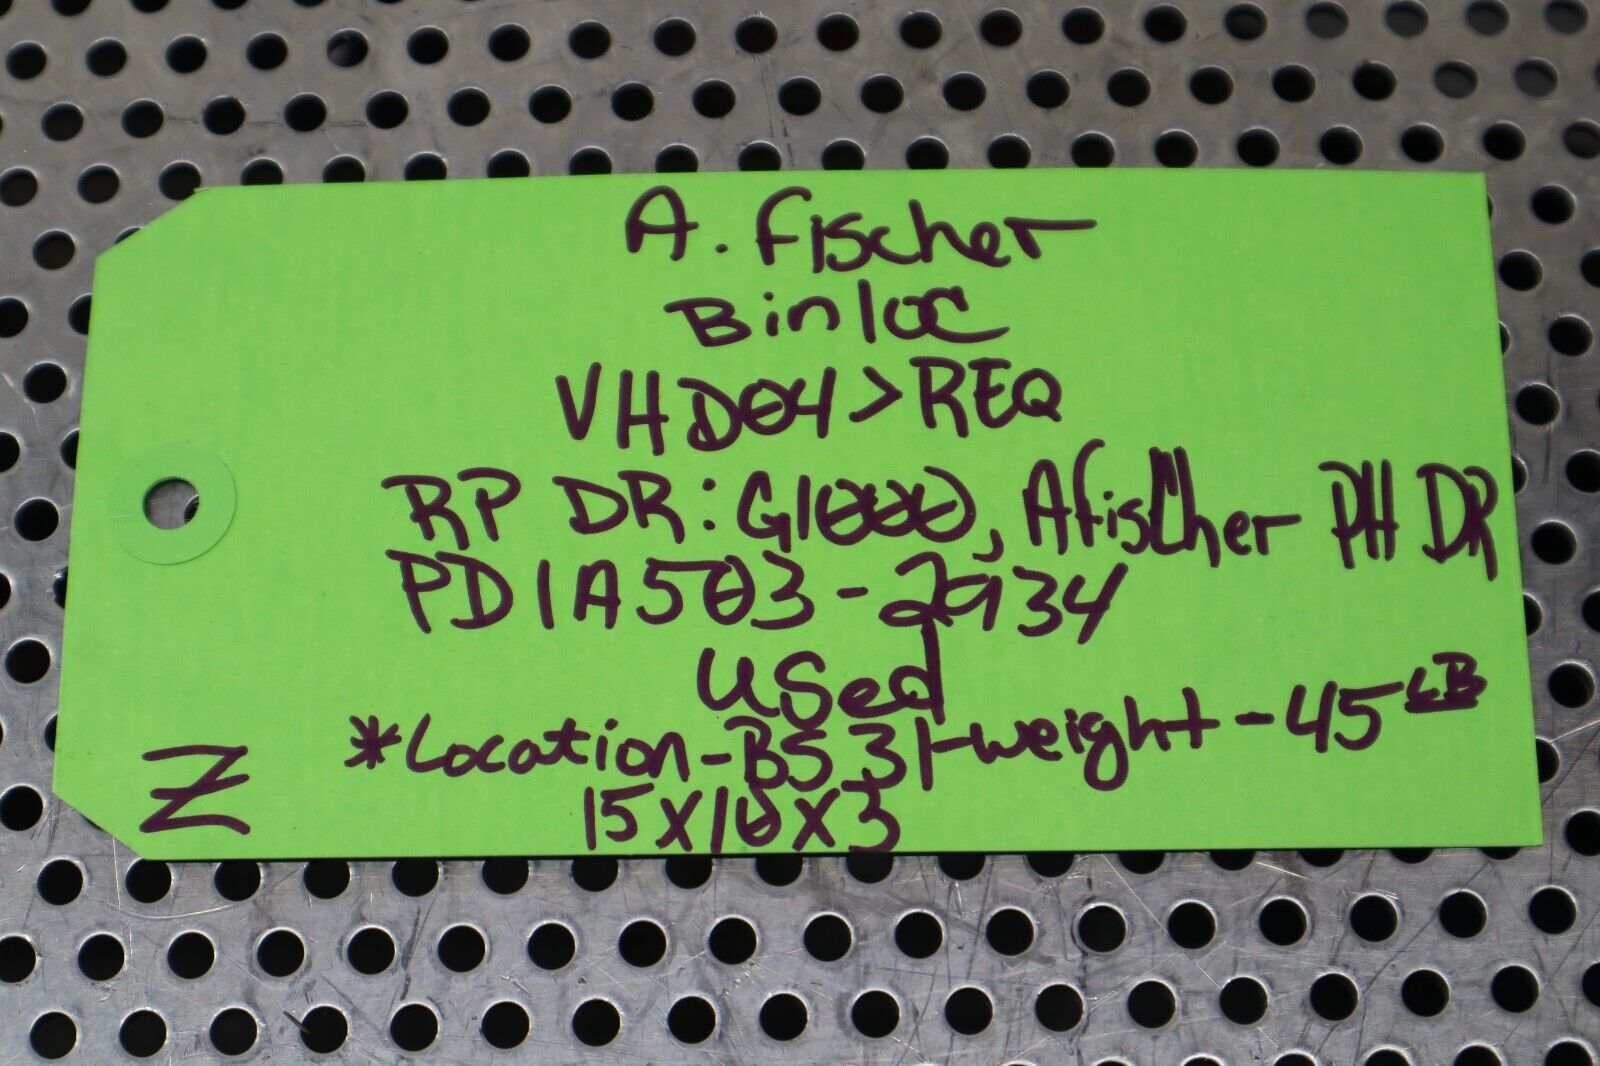 A. Fischer
Binloc
VHD04>REQ
RP DR: G1000, Afischer PH DR
PD1A503-2934
Used
*Location-BS31-weight-45LB
15X10X3
Z